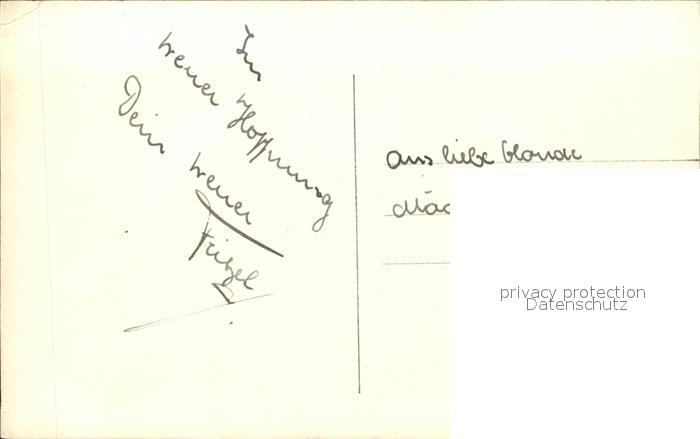 In
treuer Hoffnung
Dein treuer
Fritzl
Ans liebe blonde
Mäd
privacy protection
Datenschutz